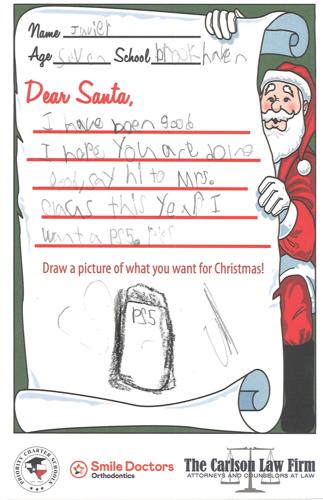 Name Javier
Age Seven School brookhaven
Dear Santa,
I have been good
I hope you are doing
good, say hi to Mrs.
this year I
want a PS5.
Draw a picture of what you want for Christmas!
PS5
PRIORITY CHARTER SCHOOLS
Smile Doctors
Orthodontics
The Carlson Law Firm
ATTORNEYS AND COUNSELORS AT LAW